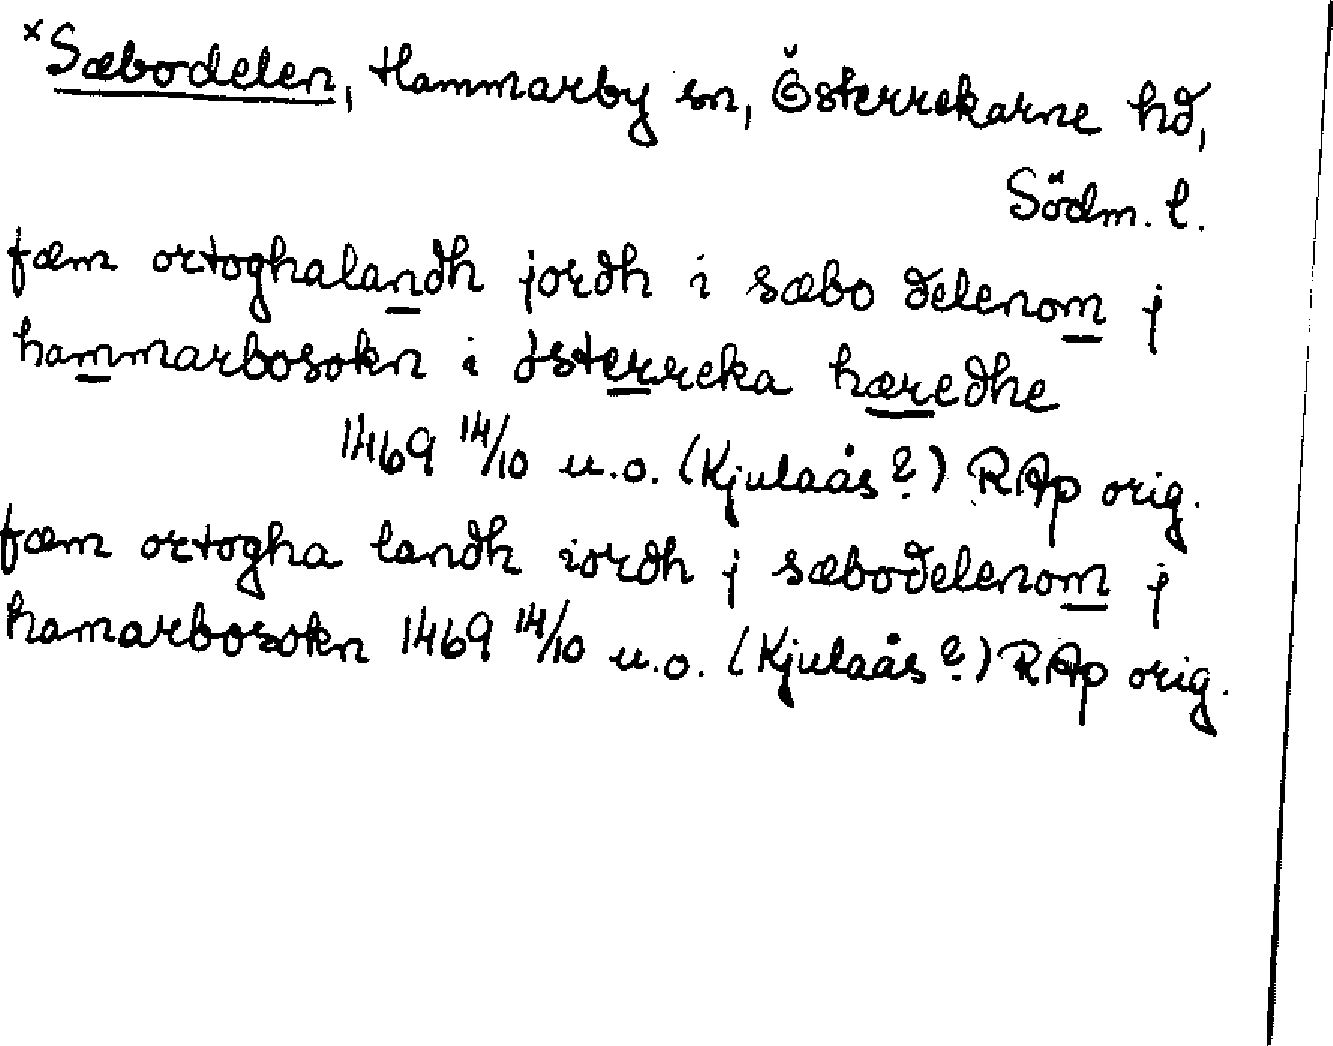 ×Sæbodelen, Hammarby sn, Österrekarne hd,
Södm. l.
fæm ortoghalandh jordh i sæbo delenom j
hammarbosokn i østerreka hæredhe
1469 14/10 u.o. (Kjulaås?) RAp orig.
fæm ortogha landh iordh j sæbodelenom j
hamarbosokn 1469 14/10 u.o. (Kjulaås?) RAp orig.